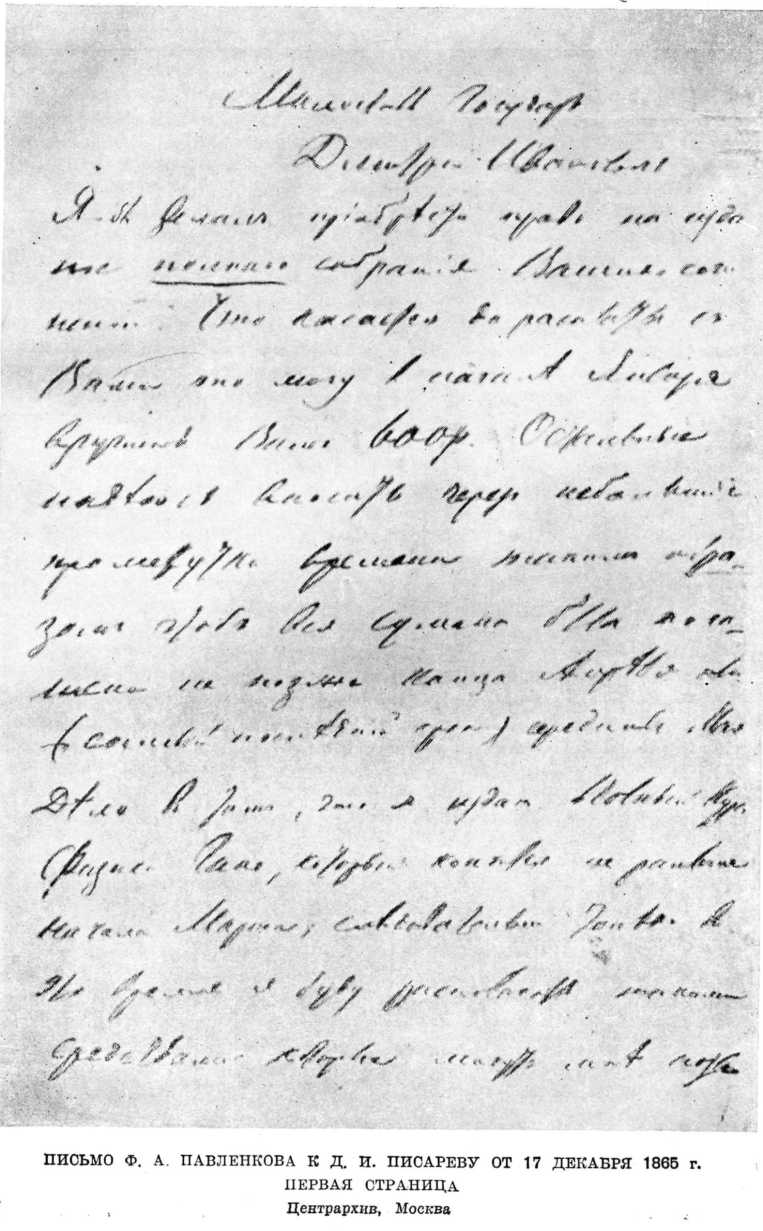 Милостивый Государь
Дмитрий Ивановичъ
Я бъ желалъ пріобрѣсти право на изда
ніе полнаго собранія Вашихъ сочи
неній. Что касается до расплаты съ
Вами то могу въ началѣ Января
вручить Вамъ 600 р. Остальные
надѣюсь вносить черезъ небольшіе
промежутки времени такимъ обра-
зомъ чтобъ вся сумма была пога-
шена не позже конца Апрѣля или
(самый поздній срокъ) средины Мая
Дѣло въ томъ, что я издаю Полный Кур.
Физики Гано, который кончится не раньше
начала Марта; слѣдовательно только въ
это время я буду располагать такими
средствами которые могутъ мнѣ позво
ПИСЬМО Ф. А. ПАВЛЕНКОВА К Д. И. ПИСАРЕВУ ОТ 17 ДЕКАБРЯ 1865 г.
ПЕРВАЯ СТРАНИЦА
Центрархив, Москва